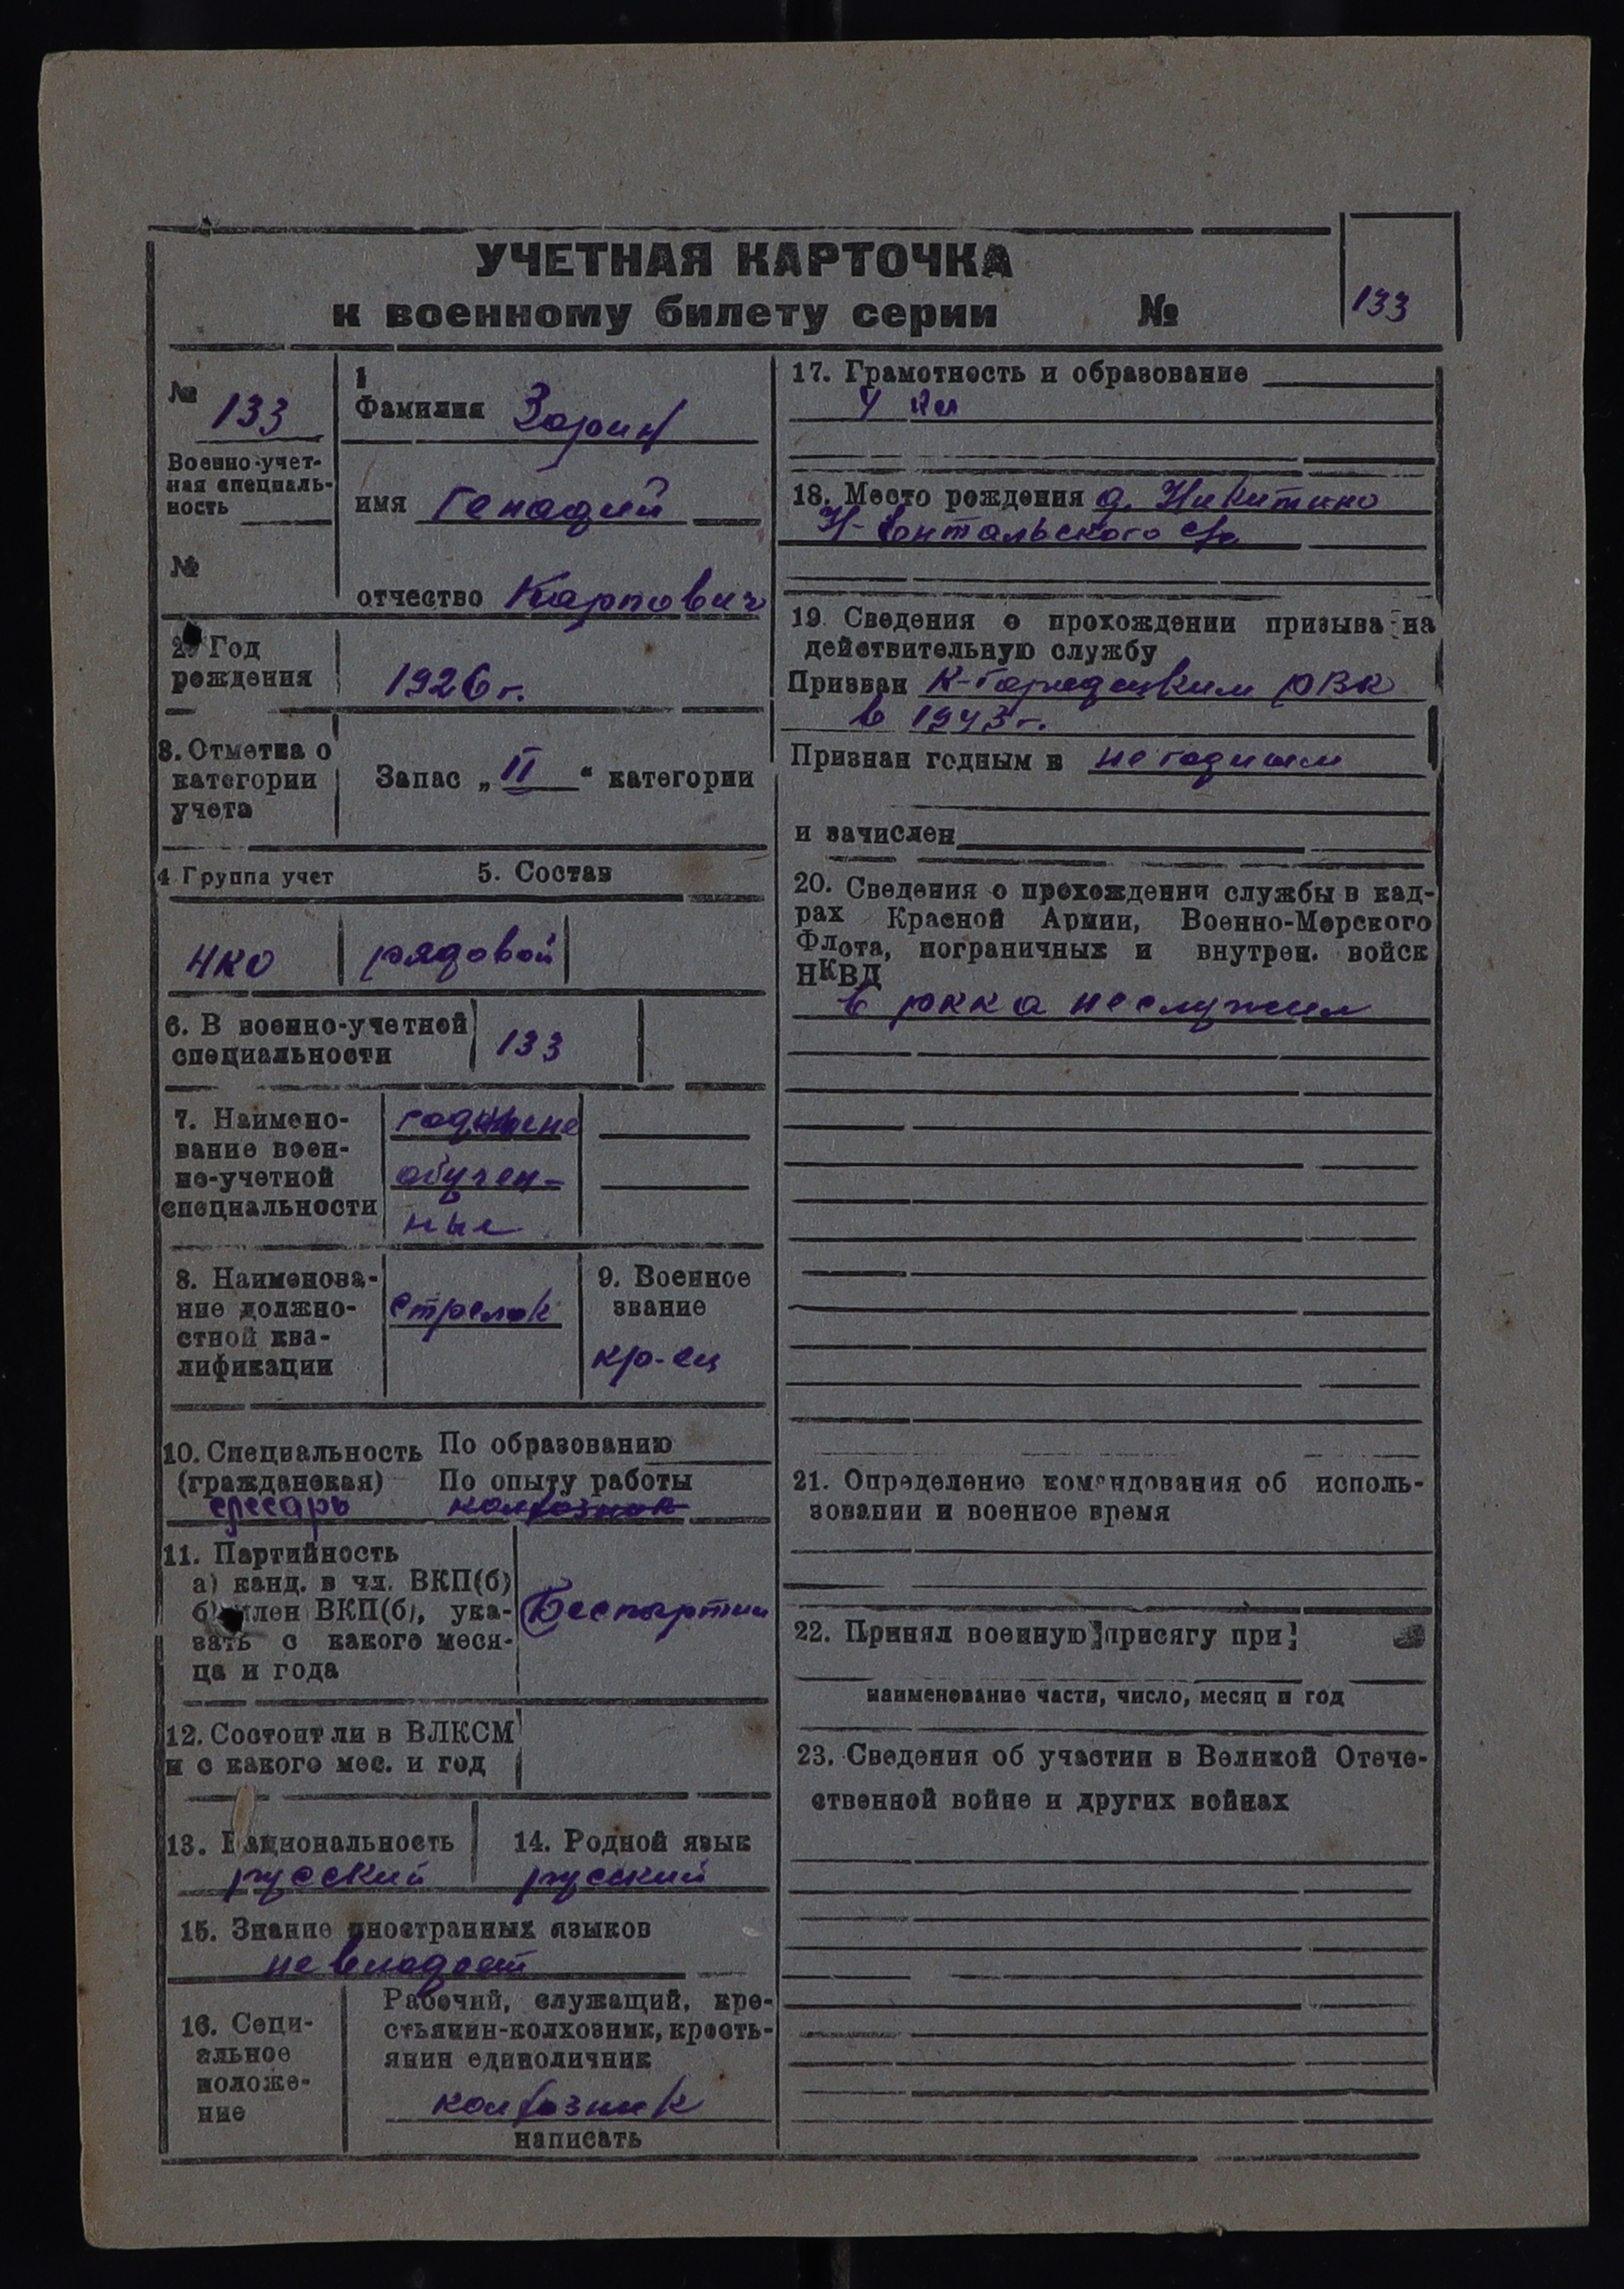 УЧЕТНАЯ КАРТОЧКА
к военному билету серии №
133
№ 133
Военно-учет-
ная специаль-
ность
№
1
Фамилия Зорин
имя Генадий
отчество Карпович
2. Год
рождения
1926 г.
3. Отметка о
категории
учета
Запас „ II “ категории
4 Группа учет
5. Состав
НКО
рядовой
6. В военно-учетной
специальности
133
7. Наимено-
вание воен-
но-учетной
специальности
годные не
обучен-
ные
8. Наименова-
ние должно-
стной ква-
лификации
стрелок
9. Военное
звание
кр-ец
10. Специальность По образованию
(гражданская) По опыту работы
слесарь колхозник
11. Партийность
а) канд. в чл. ВКП(б)
б) член ВКП(б), ука-
зать с какого меся-
ца и года
Беспартии
12. Состоит ли в ВЛКСМ
и с какого мес. и год
13. Национальность
русский
14. Родной язык
русский
15. Знание иностранных языков
не владеет
16. Соци-
альное
положе-
ние
Рабочий, служащий, кре-
стьянин-колхозник, кресть-
янин единоличник
колхозник
написать
17. Грамотность и образование
4 кл
18. Место рождения д. Никитино
Н-Ентальского с/с
19. Сведения о прохождении призыва на
действительную службу
Призван К-Городецким РВК
в 1943 г.
Признан годным в не годным
и зачислен
20. Сведения о прохождении службы в кад-
рах Красной Армии, Военно-Морского
Флота, пограничных и внутрен. войск
НКВД
в ркка не служил
21. Определение командования об исполь-
зовании и военное время
22. Принял военную присягу при
наименование части, число, месяц и год
23. Сведения об участии в Великой Отече-
ственной войне и других войнах